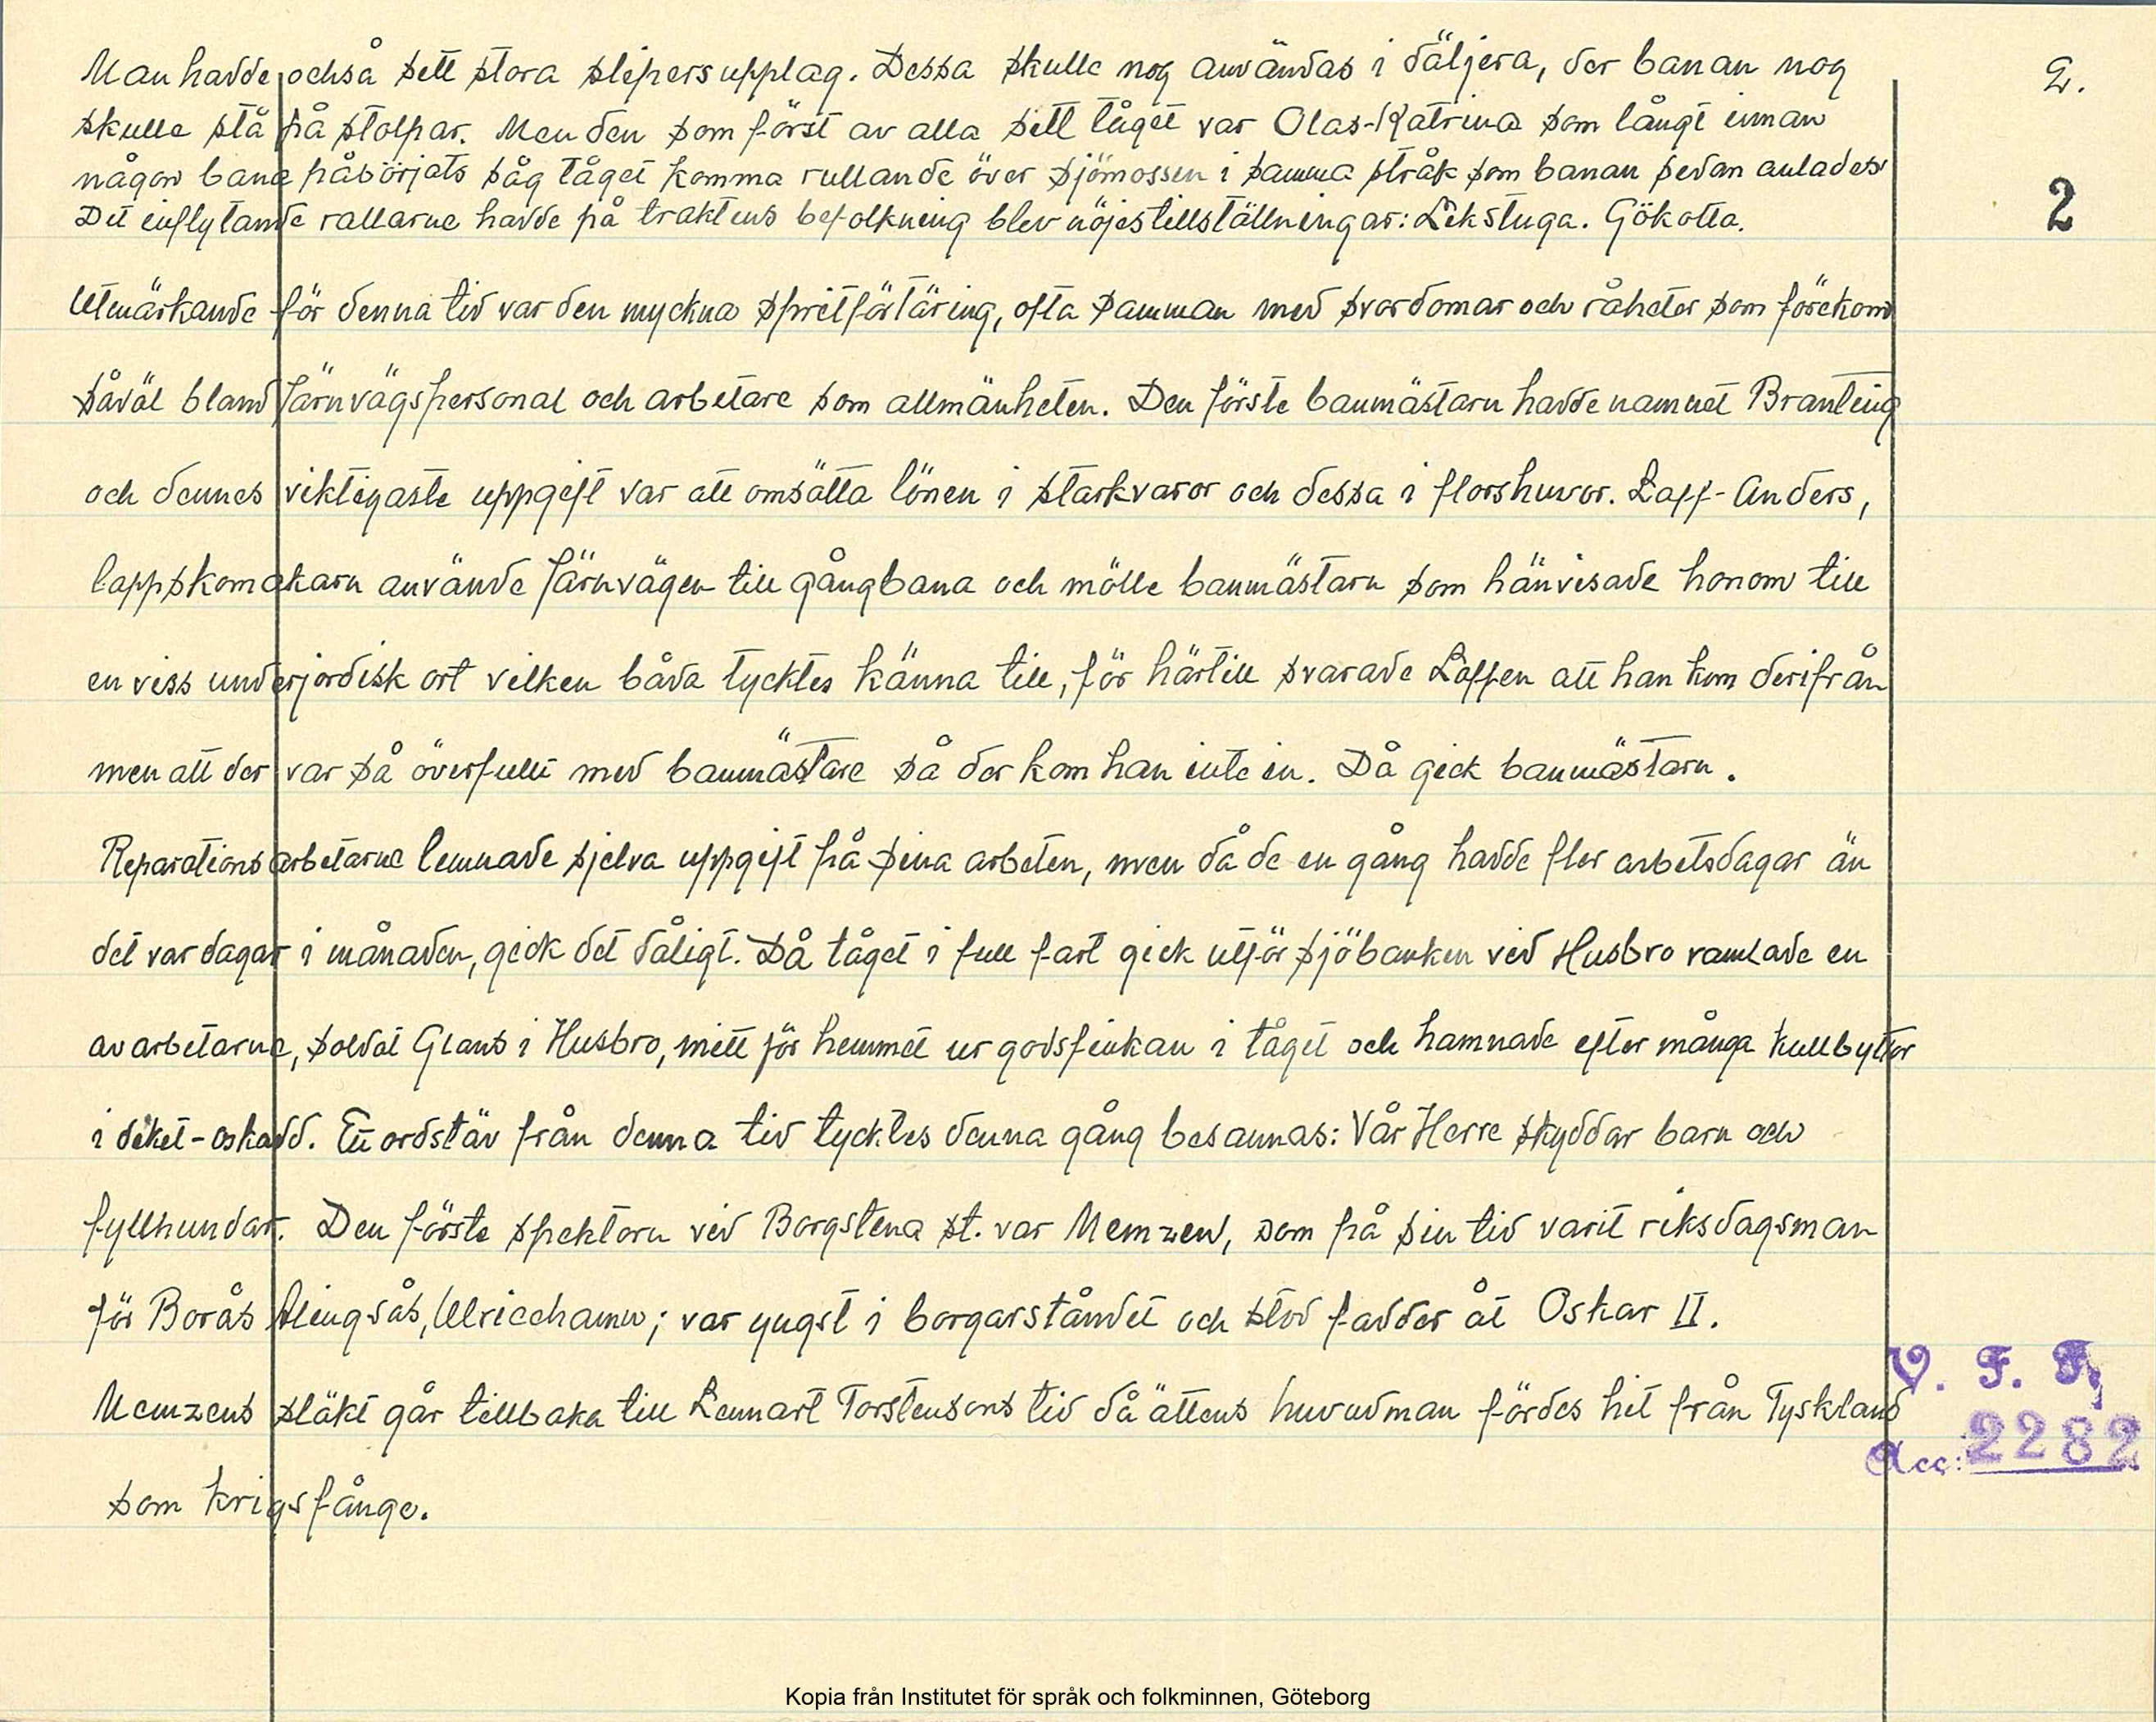 Man havde ochså sett stora slipersupplag. Dessa skulle nog användas i däljera, der banan nog
2.
skulle stå på stolpar. Men den som först av alla sett tåget var Olas-Katrina som långt innan
någon bana påbörjats såg tåget komma rullande över sjömossen i samma stråk som banan sedan anlades
2
Det inflytande rallarne havde på traktens befolkning blev nöjestillställningar: Lekstuga. Gökotta.
Utmärkande för denna tid var den myckna spritförtäring, ofta samman med svordomar och råheter som förekom
såväl bland järnvägspersonal och arbetare som allmänheten. Den förste banmästarn havde namnet Branting
och dennes viktigaste uppgift var att omsätta lönen i starkvaror och dessa i florshuvor. Lapp-Anders,
lappskomakarn använde järnvägen till gångbana och mötte banmästarn som hänvisade honom till
en viss underjordisk ort vilken båda tycktes känna till, för härtill svarade Lappen att han kom derifrån
men att der var så överfullt med banmästare så der kom han inte in. Då gick banmästarn.
Reparationsarbetarne lemnade sjelva uppgift på sina arbeten, men då de en gång havde fler arbetsdagar än
det var dagar i månaden, gick det dåligt. Då tåget i full fart gick utför sjöbanken vid Husbro ramlade en
av arbetarne, soldat Glans i Husbro, mitt för hemmet ur godsfinkan i tåget och hamnade efter många kullbyttor
i diket - oskadd. Ett ordstäv från denna tid tycktes denna gång besannas: Vår Herre skyddar barn och
fyllhundar. Den förste spektorn vid Borgstena st. var Memzen, som på sin tid varit riksdagsman
för Borås Alingsås, Ulricehamn; var yngst i borgarståndet och stod fadder åt Oskar II.
V. F. F.
Memzens släkt går tillbaka till Lennart Torstensons tid då ättens huvudman fördes hit från Tyskland
Acc: 2282
som krigsfånge.
Kopia från Institutet för språk och folkminnen, Göteborg